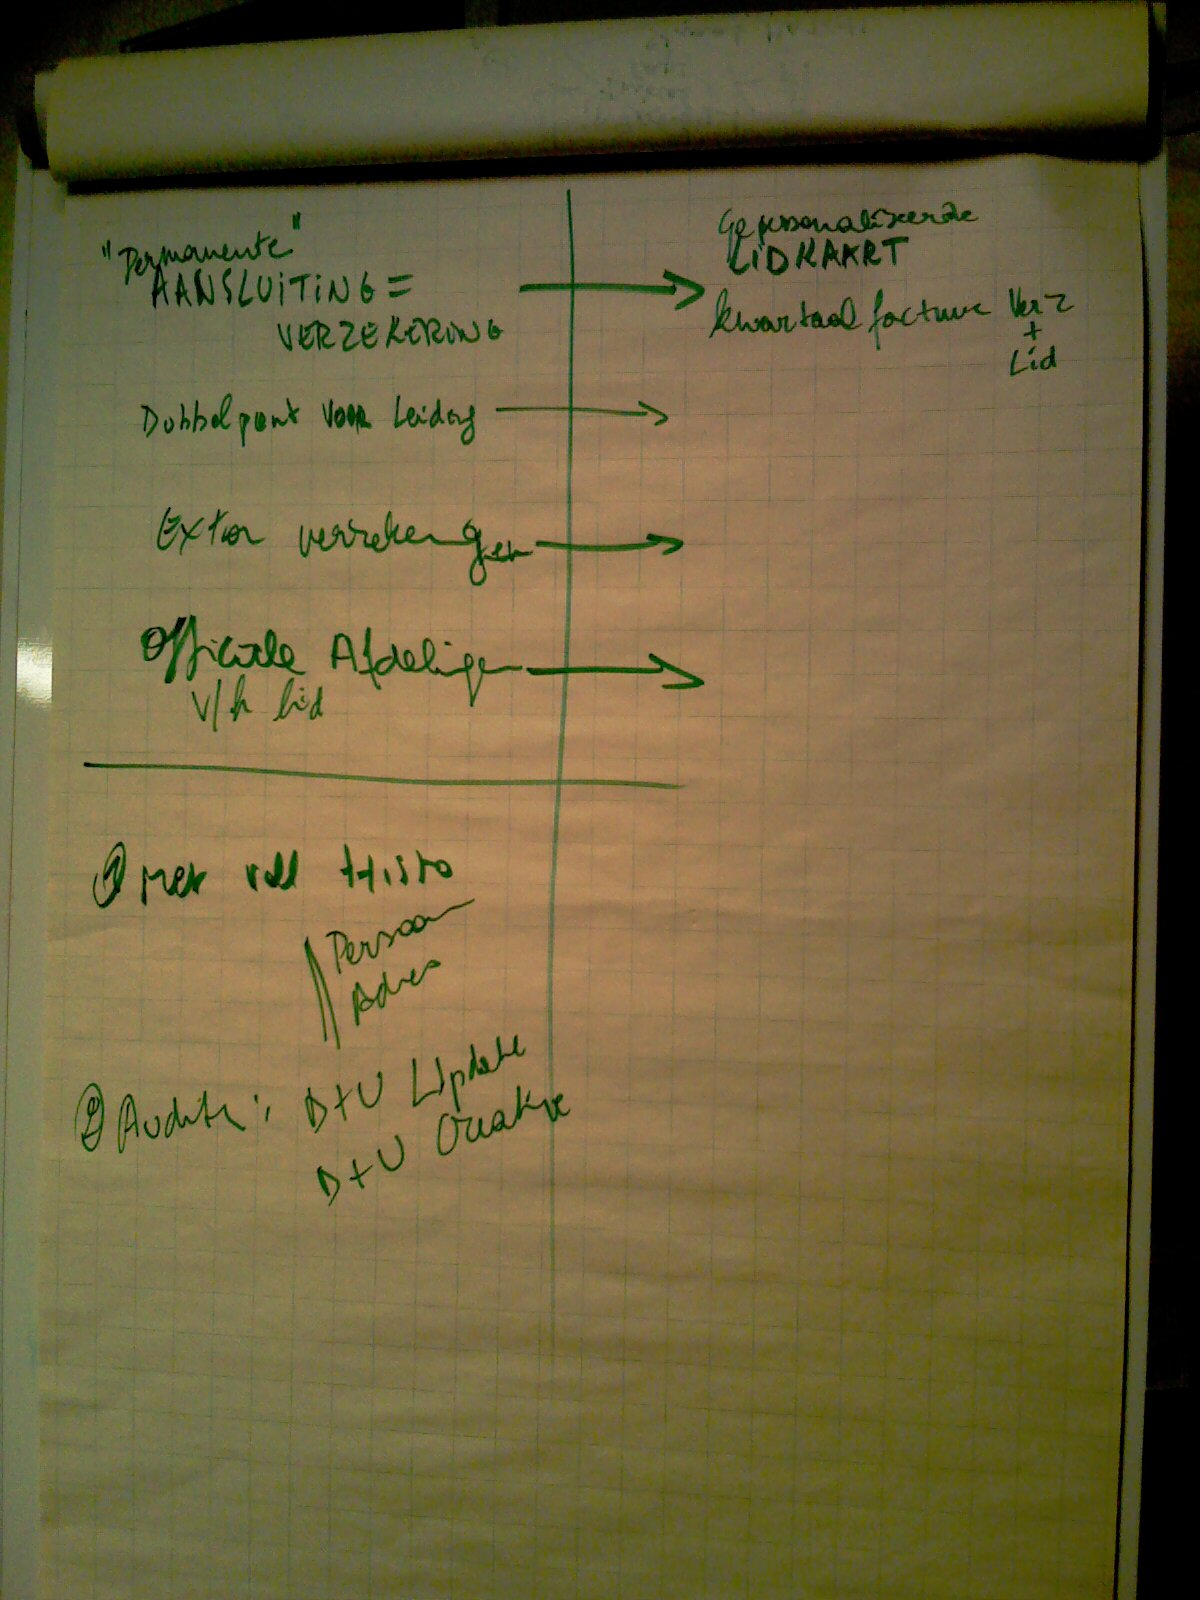 "Permanente"
AANSLUITING =
VERZEKERING
Gepersonaliseerde
LIDKAART
kwartaal facture Verz
+
Lid
Dubbelpunt voor Leiding
Extra verzekeringen
Officiële Afdelingen
v/h lid
① Met Histo
Persoon
Adres
② Audit : D+U Update
D+U Creatie